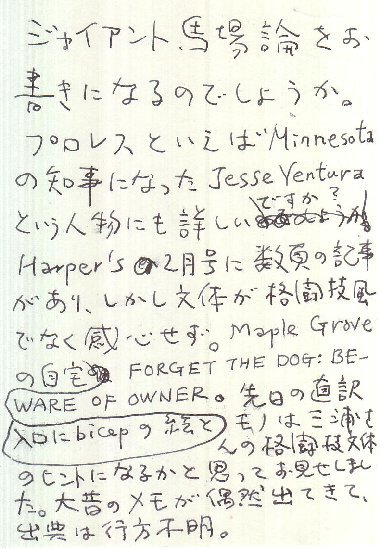 ジャイアント馬場論をお
書きになるのでしょうか。
プロレスといえばMinnesota
の知事になったJesse Ventura
という人物にも詳しいですか?
Harper's 2月号に数頁の記事
があり、しかし文体が格闘技風
でなく感心せず。Maple Grove
の自宅入口にbicepの絵と FORGET THE DOG: BE-
WARE OF OWNER。先日の直訳
モノは三浦さ
んの格闘技文体
のヒントになるかと思ってお見せしまし
た。大昔のメモが偶然出てきて、
出典は行方不明。